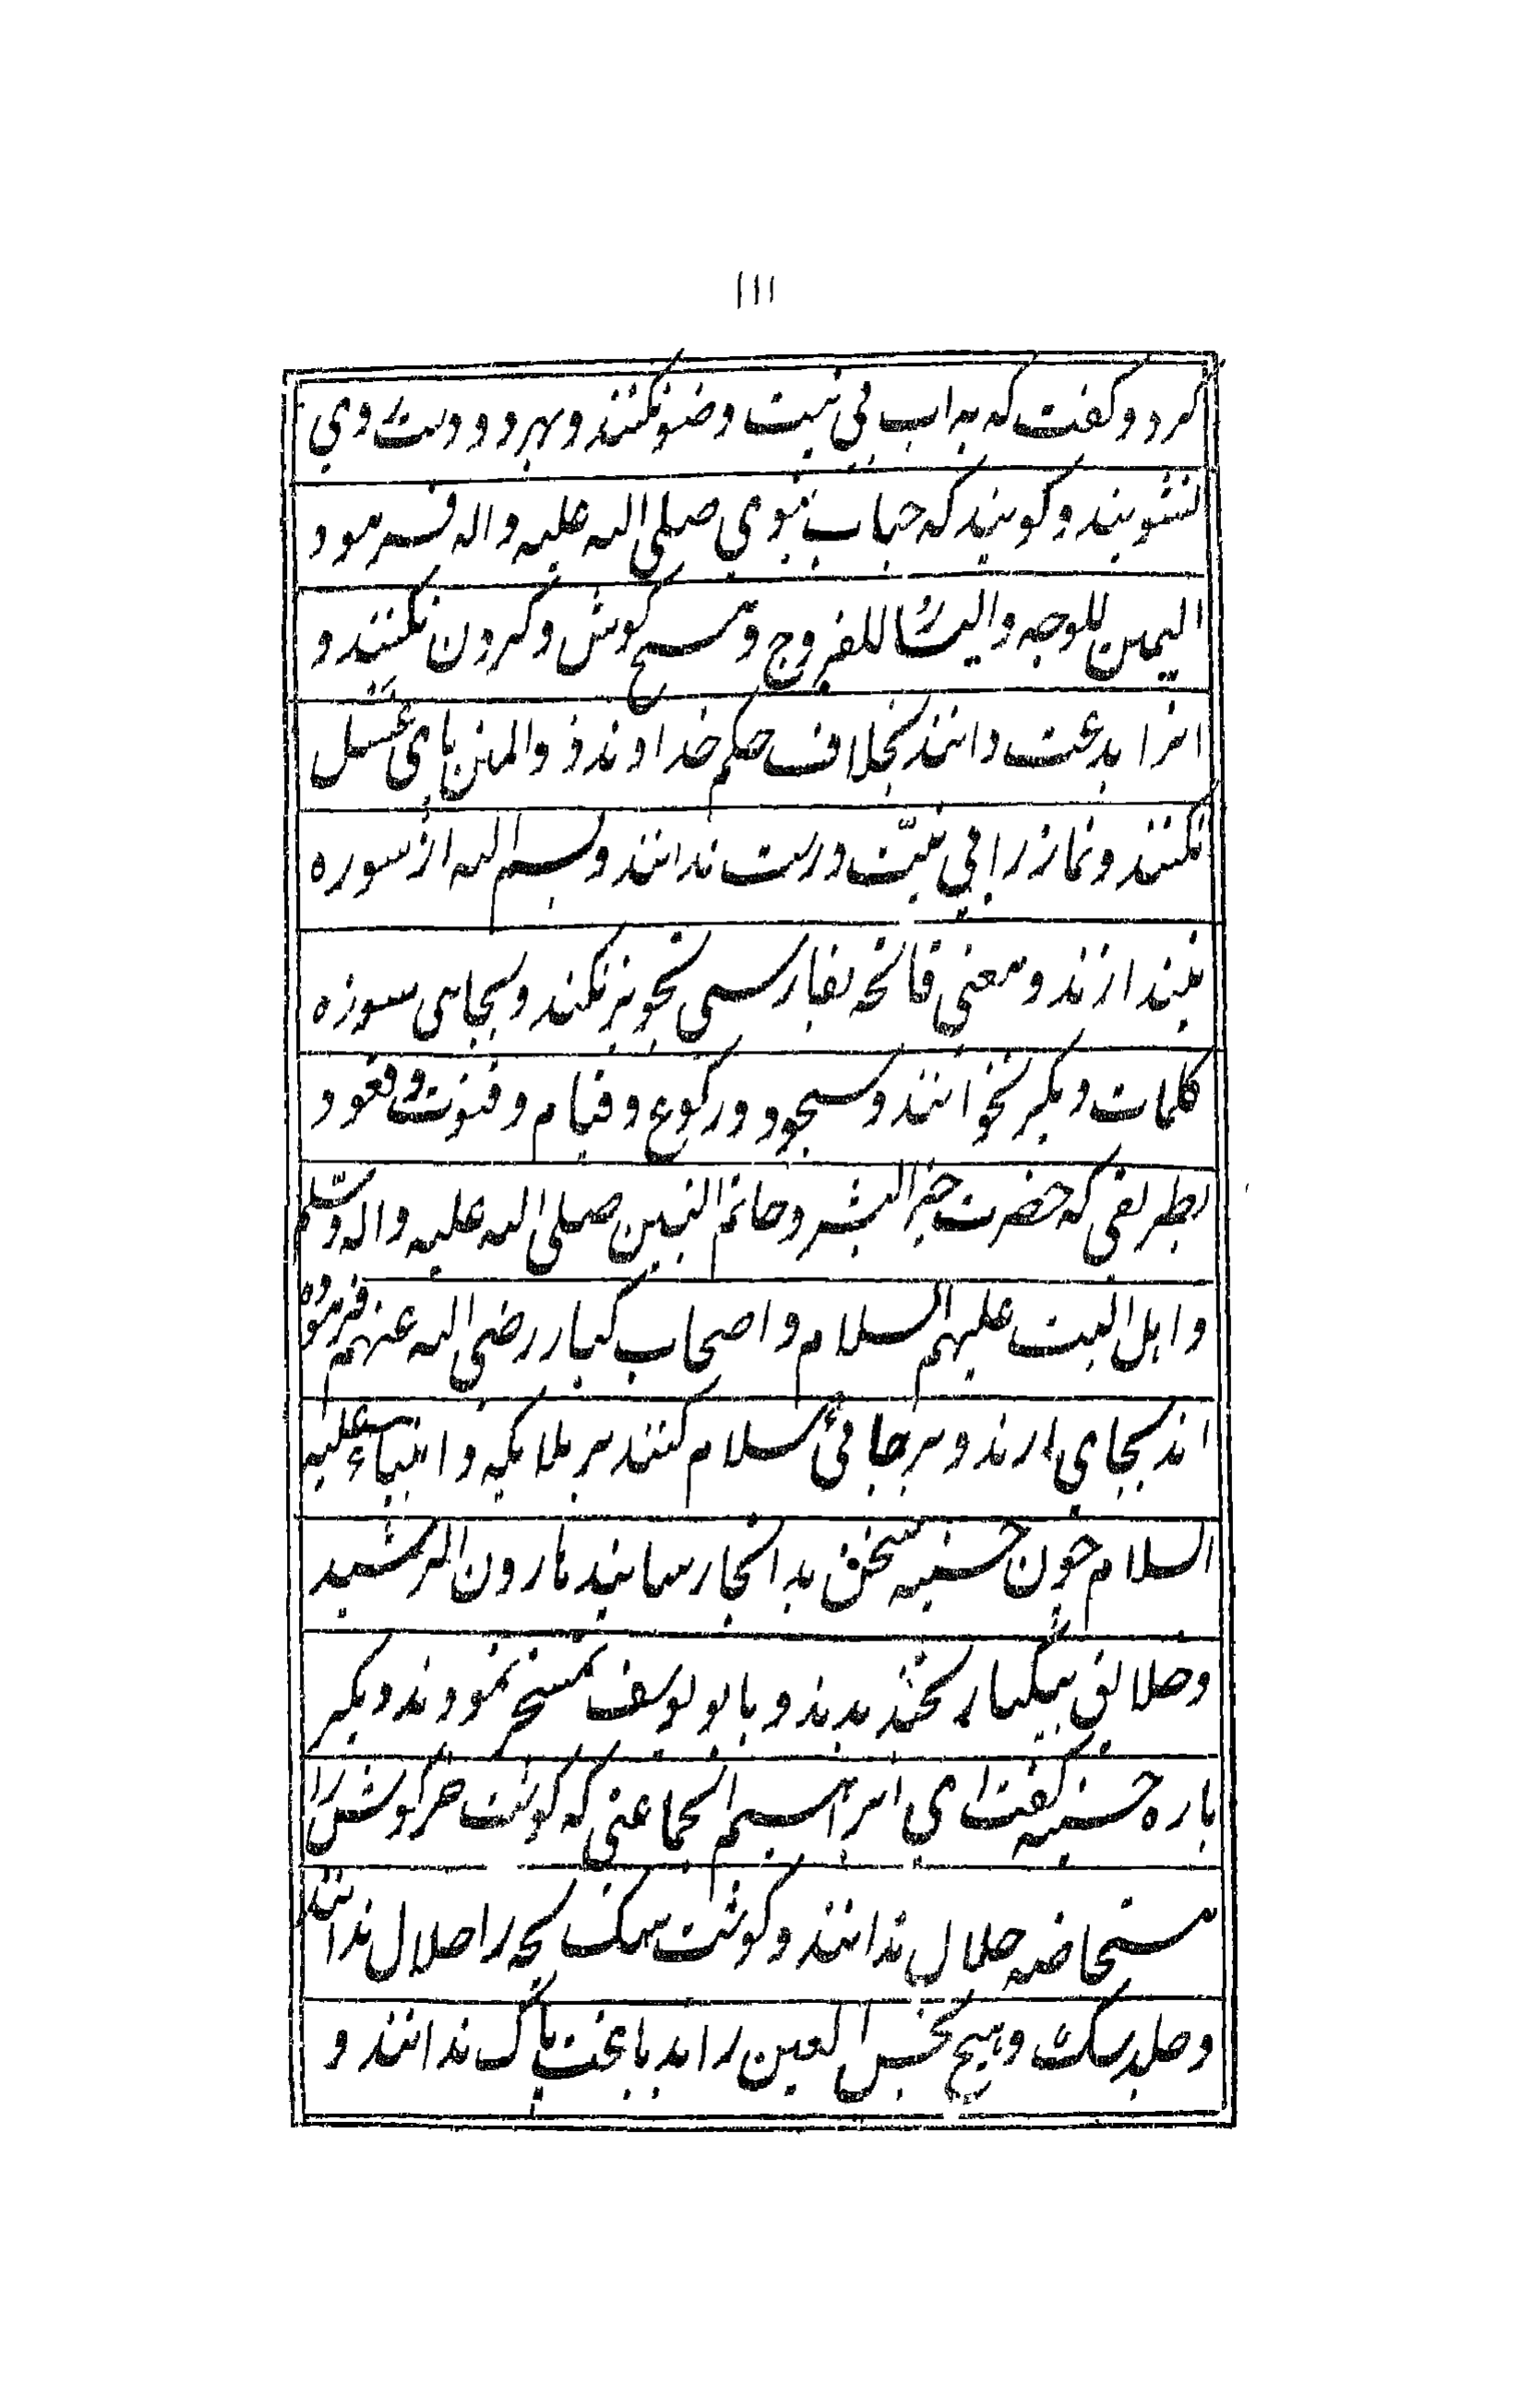 ۱۱۱
کرد و کفت که به اب بی نیت وضو نکنند و بهر دو دست روی
نشویند و کویند که جناب نبوی صلی الله علیه واله فرمود
الیمین للوجه والیسار للفروج و مسح کوش و کردن نکنند و
انرا بدعت دانند بخلاف حکم خداوند ذو المنن پای غسل
نکنند و نماز را بی نیّت درست ندانند و بسم الله از سوره
نیندازند و معنی فاتحه بفارسی تجویز نکنند و بجای سوره
کلمات دیکر نخوانند و سجود و رکوع و قیام و قنوت و قعود
بطریقی که حضرت خیر البشر و خاتم النبین صلی الله علیه واله وسّلم
و اهل البیت علیهم السلام و اصحاب کبار رضی الله عنهم فرموده
اند بجای ارند و بر جائی سلام کنند بر ملایکه و انبیاء علیه
السلام چون حسنیه سخن بدانجا رسانید هارون الرشید
و خلایق بیکبار بخندیدند و بابو یوسف تمسخر نمودند دیکر
باره حسنیه کفت ای ابراهیم الجماعتی که کوشت خرکوش را
مستحاضه حلال ندانند و کوشت سک بچه را حلال ندانند
و جلد سک و هیچ نجس العین را بدباغت پاک ندانند و